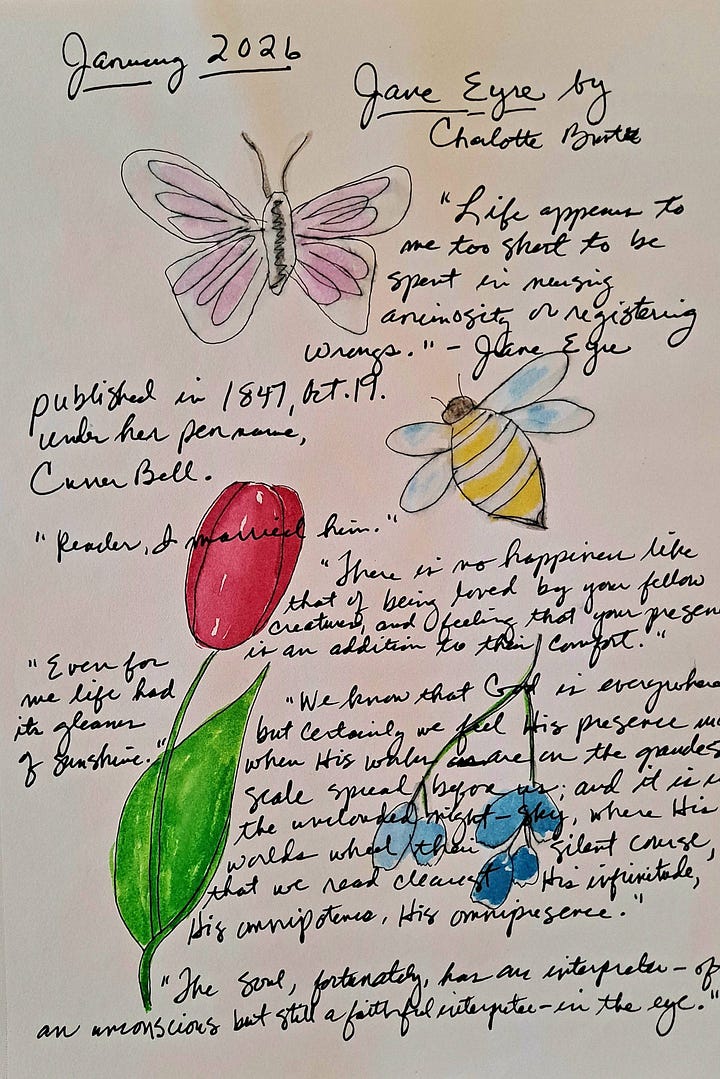 January 2026
Jane Eyre by
Charlotte Bronte
"Life appears to
me too short to be
spent in nursing
animosity or registering
wrongs." - Jane Eyre
published in 1847, Oct. 19.
under her pen name,
Currer Bell.
"Reader, I married him."
"There is no happiness like
that of being loved by your fellow
creatures, and feeling that your presen
is an addition to their comfort."
"Even for
me life had
its gleams
of sunshine."
"We know that God is everywhere
but certainly we feel His presence mo
when His works are on the grandes
scale spread before us; and it is i
the unclouded night-sky, where His
worlds wheel their silent course,
that we read clearest His infinitude,
His omnipotence, His omnipresence."
"The soul, fortunately, has an interpreter - of
an unconscious but still a faithful interpreter - in the eye."